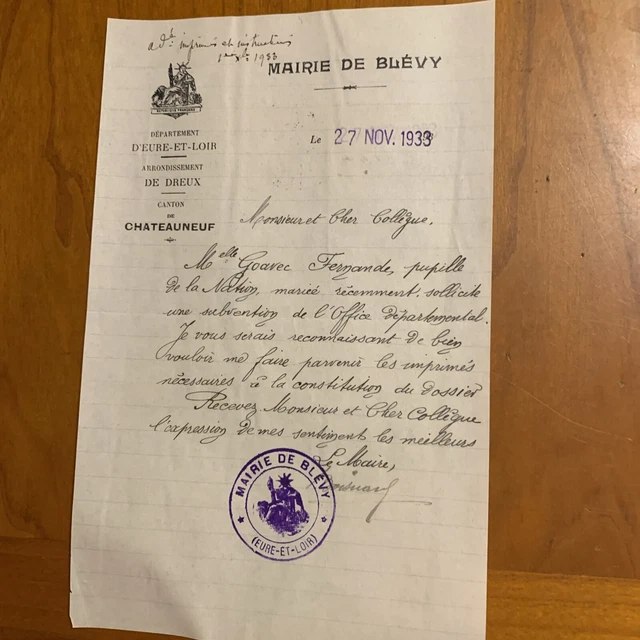 ad. imprimés et instructions
1933
MAIRIE DE BLÉVY
RÉPUBLIQUE FRANÇAISE
DÉPARTEMENT
D'EURE-ET-LOIR
ARRONDISSEMENT
DE DREUX
CANTON
DE
CHATEAUNEUF
Le 27 NOV. 1933
Monsieur et Cher Collègue,
Melle Goavec Fernande, pupille
de la Nation, mariée récemment sollicite
une subvention de l'Office départemental.
Je vous serais reconnaissant de bien
vouloir me faire parvenir les imprimés
nécessaires à la constitution du dossier
Recevez Monsieur et Cher Collègue
l'expression de mes sentiment les meilleurs
Le Maire,
MAIRIE DE BLÉVY
(EURE-ET-LOIR)